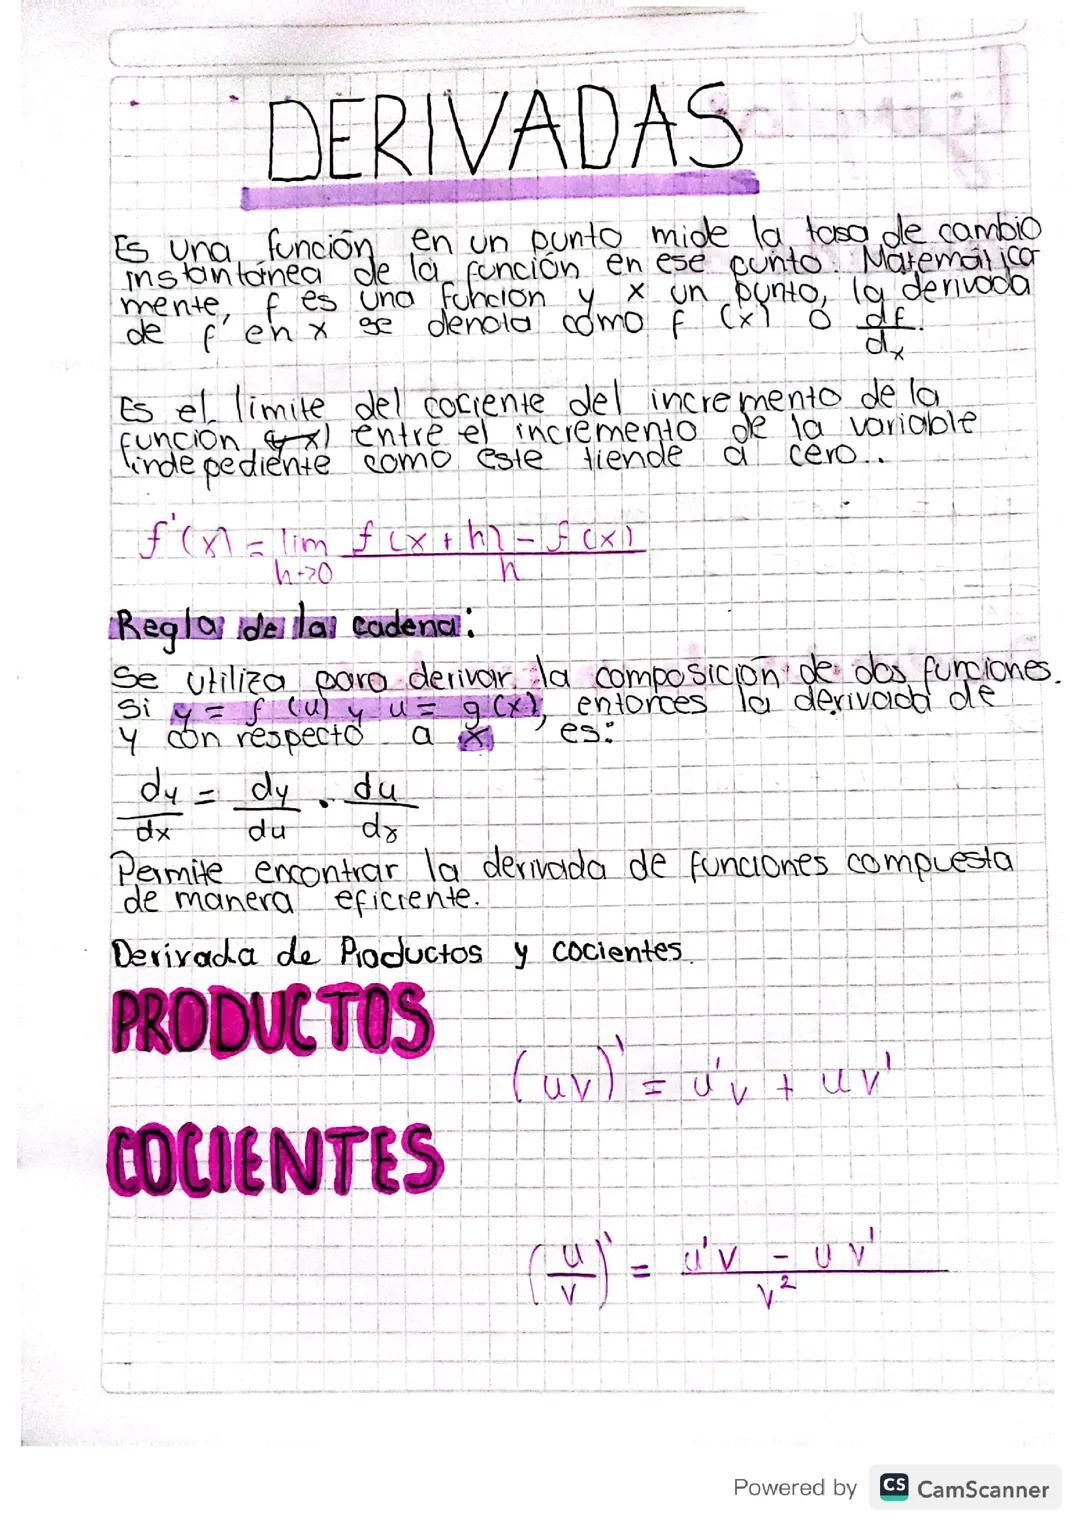 DERIVADAS
Es una función en un punto mide la tasa de cambio
instantánea de la función en ese punto. Matemática
mente, f es una función y x un punto, la derivada
de f' en x se denota como f (x) o df/dx.
Es el límite del cociente del incremento de la
función (x) entre el incremento de la variable
indepediente como este tiende a cero..
f'(x) = lim f(x+h) - f(x)
h->0 h
Regla de la cadena:
Se utiliza para derivar la composición de dos funciones.
Si y = f (u) y u = g(x), entonces la derivada de
y con respecto a x es:
dy = dy . du
dx du dx
Permite encontrar la derivada de funciones compuesta
de manera eficiente.
Derivada de Productos y cocientes.
PRODUCTOS
(uv)' = u'v + uv'
COCIENTES
(u/v)' = u'v - uv'
v²
Powered by CS CamScanner